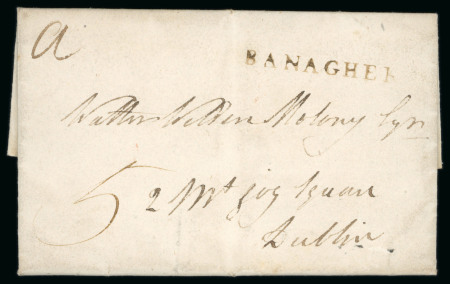 a
BANAGHER
Walter Weldon Molony Esqr
5
2 Mt Joy Square
Dublin